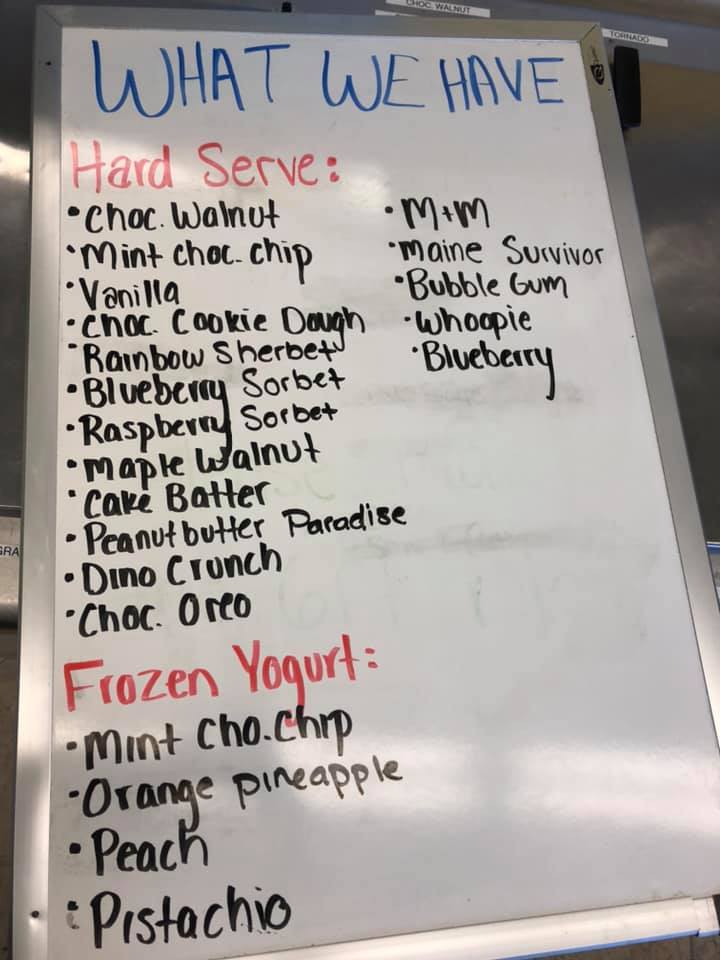 CHOC. WALNUT
TORNADO
WHAT WE HAVE
Hard Serve:
• Choc. Walnut
• Mint choc. chip
• Vanilla
• Choc. Cookie Dough
- Rainbow Sherbet
• Blueberry Sorbet
• Raspberry Sorbet
• Maple Walnut
• Cake Batter
• Peanutbutter Paradise
• Dino Crunch
• Choc. Oreo
• M+M
• Maine Survivor
• Bubble Gum
• Whoopie
• Blueberry
Frozen Yogurt:
• Mint Cho. Chip
- Orange pineapple
• Peach
• Pistachio
GRA